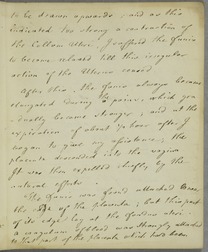 to be drawn upwards, and as this
indicated too strong a contraction of
the Collum Uteri, I suffered the Funis
to become relaxed till this irregular
action of the Uterus ceased
After this, the Funis always became
elongated during the pains, which
gradually became stronger, and at the
expiration of about ½ hour after I
began to give my assistance, the
placenta descended into the vagina
It was then expelled chiefly by the
natural efforts.
The Funis was found attached
the of the Placenta, but this part
of its edge lay at the fundus uteri.
a coagulum of blood was strongly attached
to that part of the placenta which had been